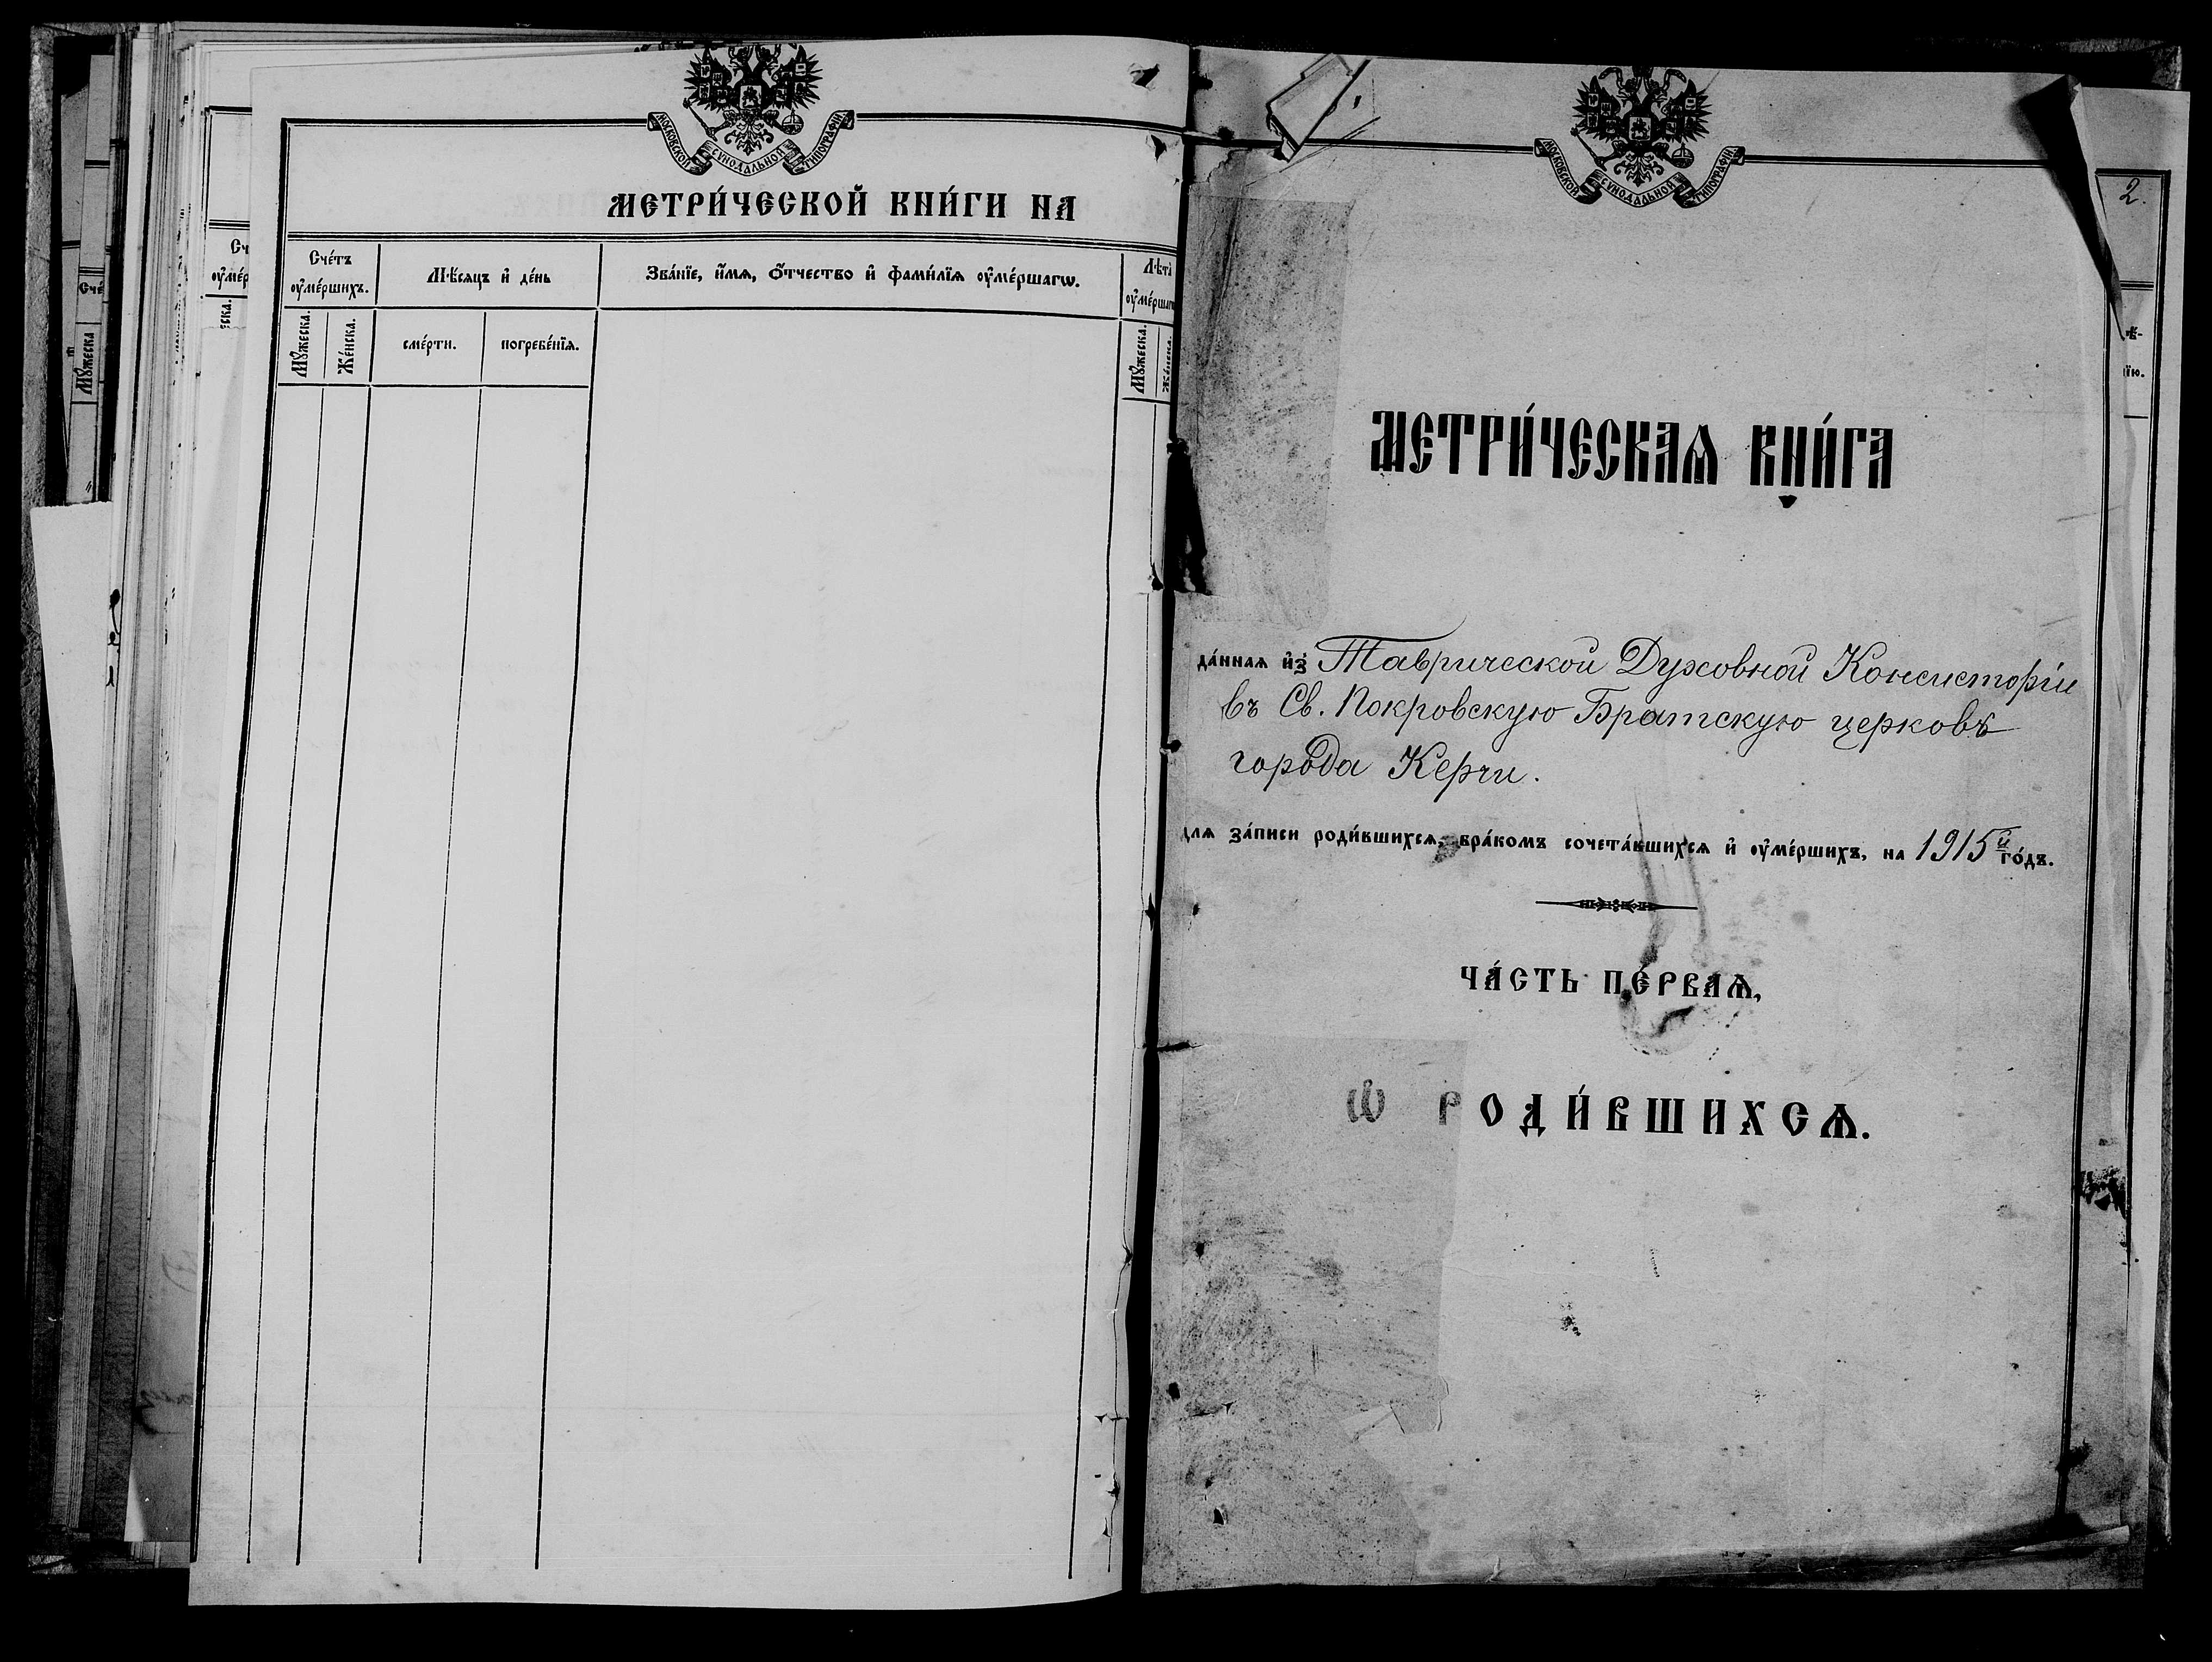 МОСКОВСКОЙ СѴНОДАЛЬНОЙ ТИПОГРАФІИ
МЕТРИ́ЧЕСКОЙ КНИ́ГИ НА
Сче́тъ оу҆ме́ршихъ.
Мѣ́сяцъ и҆ де́нь
Зва́нїе, и҆́мѧ, ѻ҆́тчество и҆ фами́лїѧ оу҆ме́ршагѡ.
Лѣ́та
Мꙋ́жеска.
Же́нска.
сме́рти.
погребе́нїѧ.
Мꙋ́жеска.
МОСКОВСКОЙ СѴНОДАЛЬНОЙ ТИПОГРАФІИ
2.
МЕТРИ́ЧЕСКАѦ КНИ́ГА
да́ннаѧ и҆з̾ Таврической Духовной Консисторіи
въ Св. Покровскую Братскую церковь
города Керчи.
для за́писи роди́вшихсѧ, бра́комъ сочета́вшихсѧ и҆ оу҆ме́ршихъ, на 1915й го́дъ.
ЧА́СТЬ ПЕ́РВАѦ,
Ѡ҆ РОДИ́ВШИХСѦ.